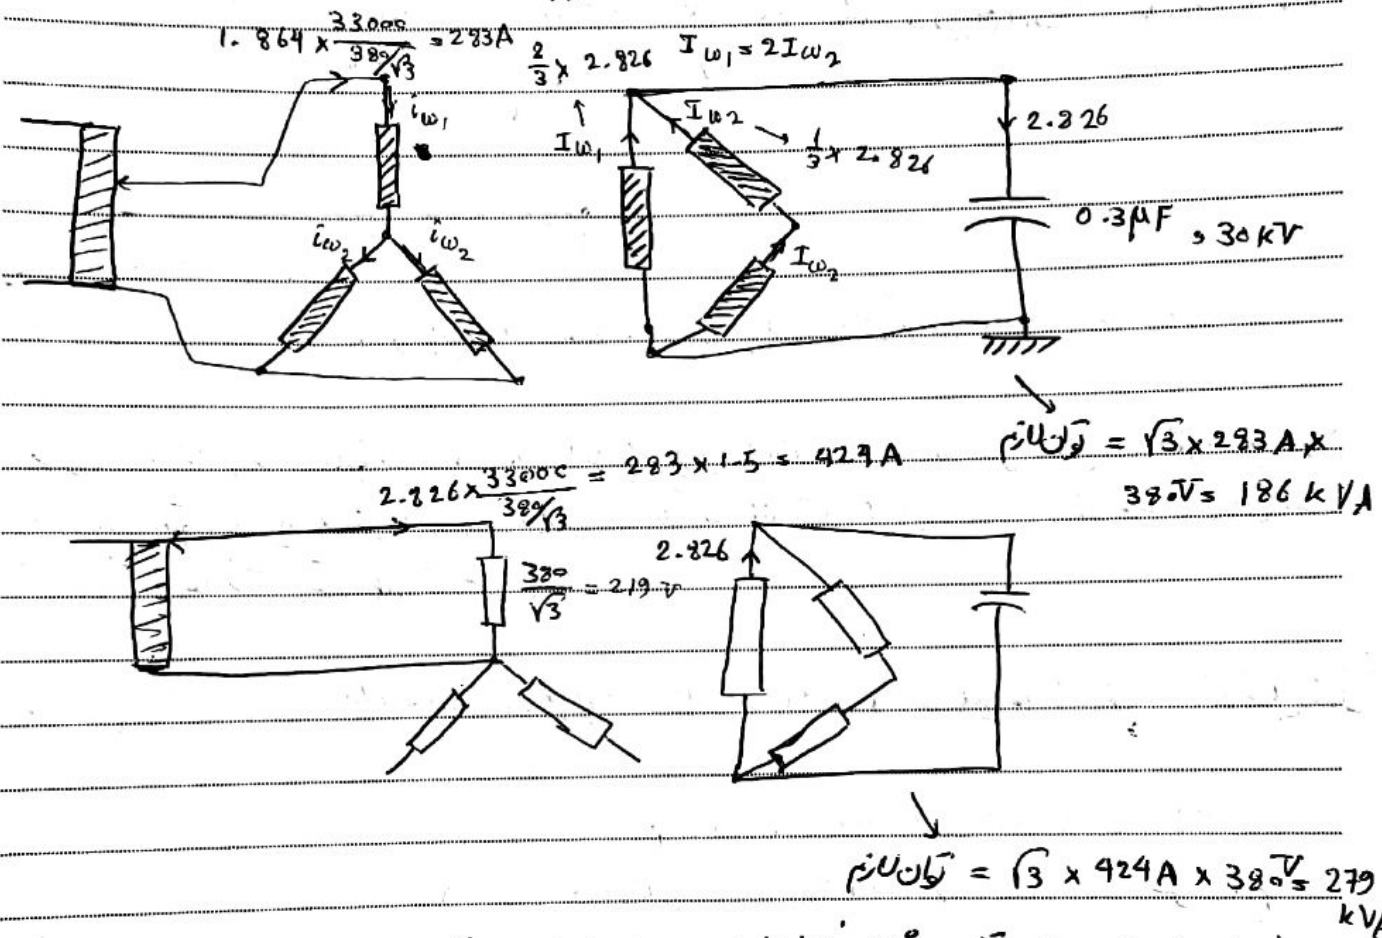 1.864 × 33000 / 380/√3 = 283A
2/3 × 2.826 I ω₁ = 2 I ω₂
i ω₁
I ω₁
I ω2
1/3 × 2.826
2.826
i ω₂
i ω₂
I ω₂
0.3 μF , 30 kV
توان لازم = √3 × 283 A ×
380V = 186 kVA
2.826 × 33000 / 380/√3 = 283 × 1.5 = 424 A
380/√3 = 219 v
2.826
توان لازم = √3 × 424A × 380V = 279
kVA